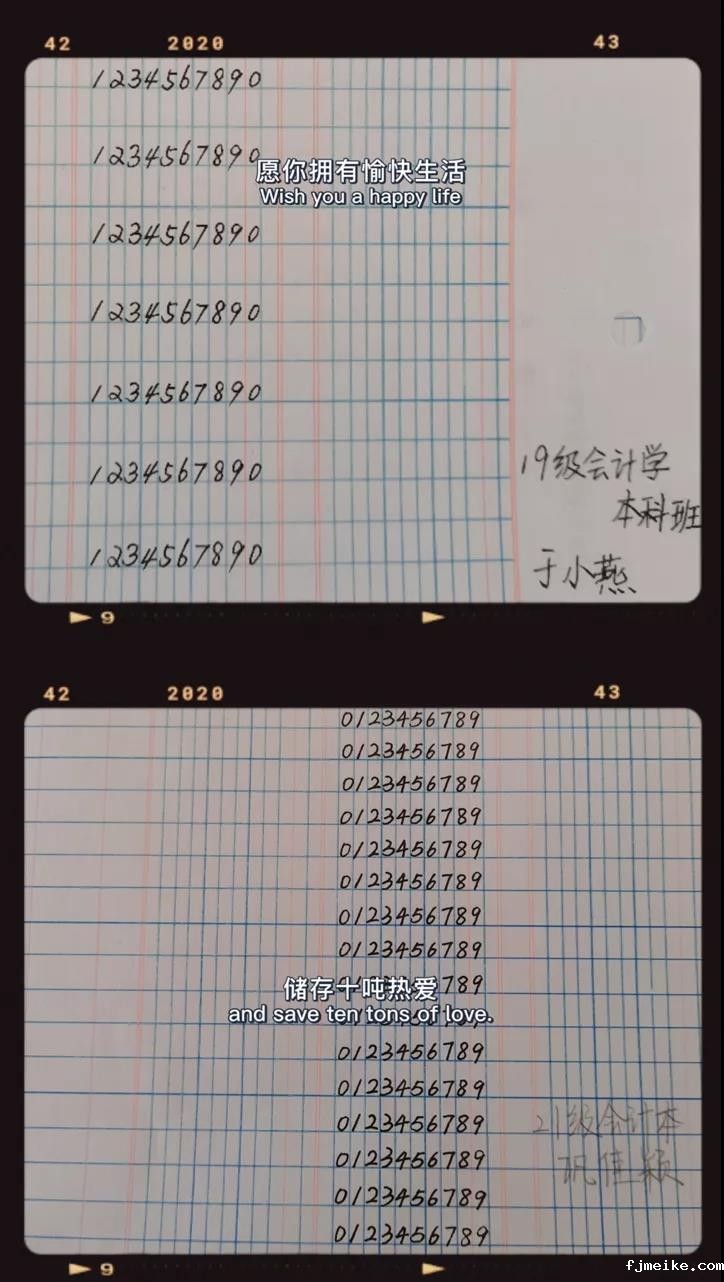 42 2020 43
1234567890
1234567890
愿你拥有愉快生活
Wish you a happy life
1234567890
1234567890
1234567890
1234567890
1234567890
19级会计学
本科班
于小燕
9
42 2020 43
0123456789
0123456789
0123456789
0123456789
0123456789
0123456789
0123456789
0123456789
789
储存十吨热爱
and save ten tons of love.
0123456789
0123456789
0123456789
0123456789
0123456789
0123456789
21级会计本
巩佳颖
9
fjmeike.com